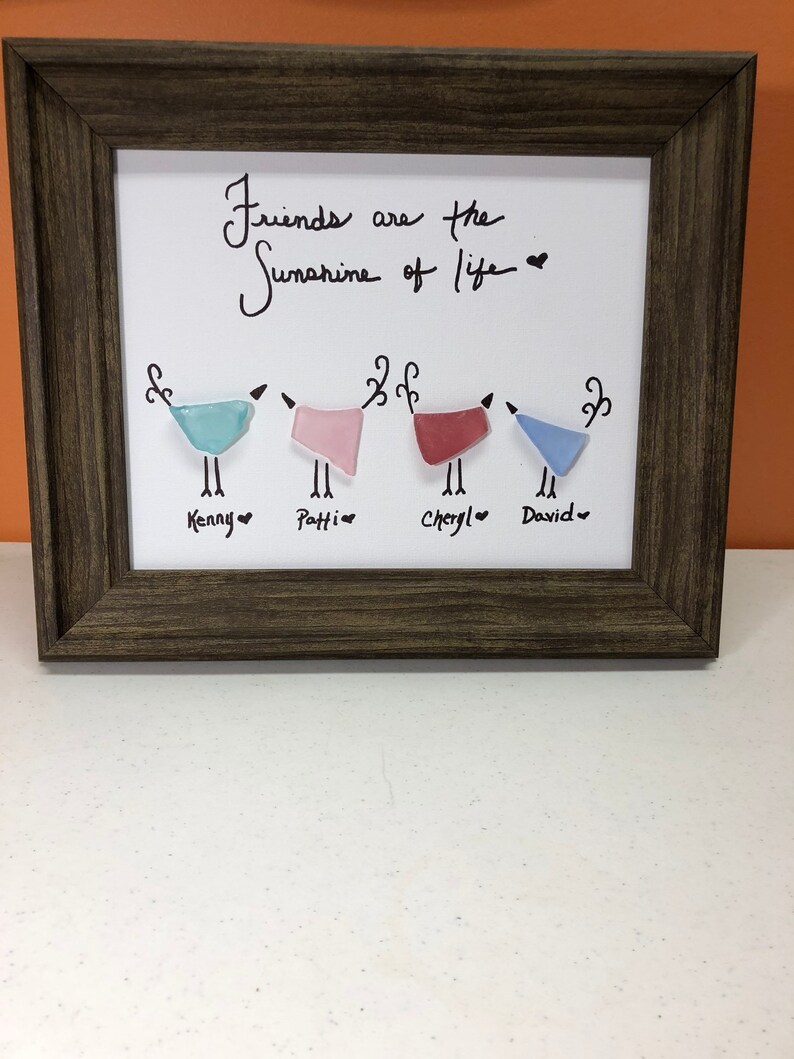 Friends are the
Sunshine of life ♥
Kenny♥ Patti♥ Cheryl♥ David♥